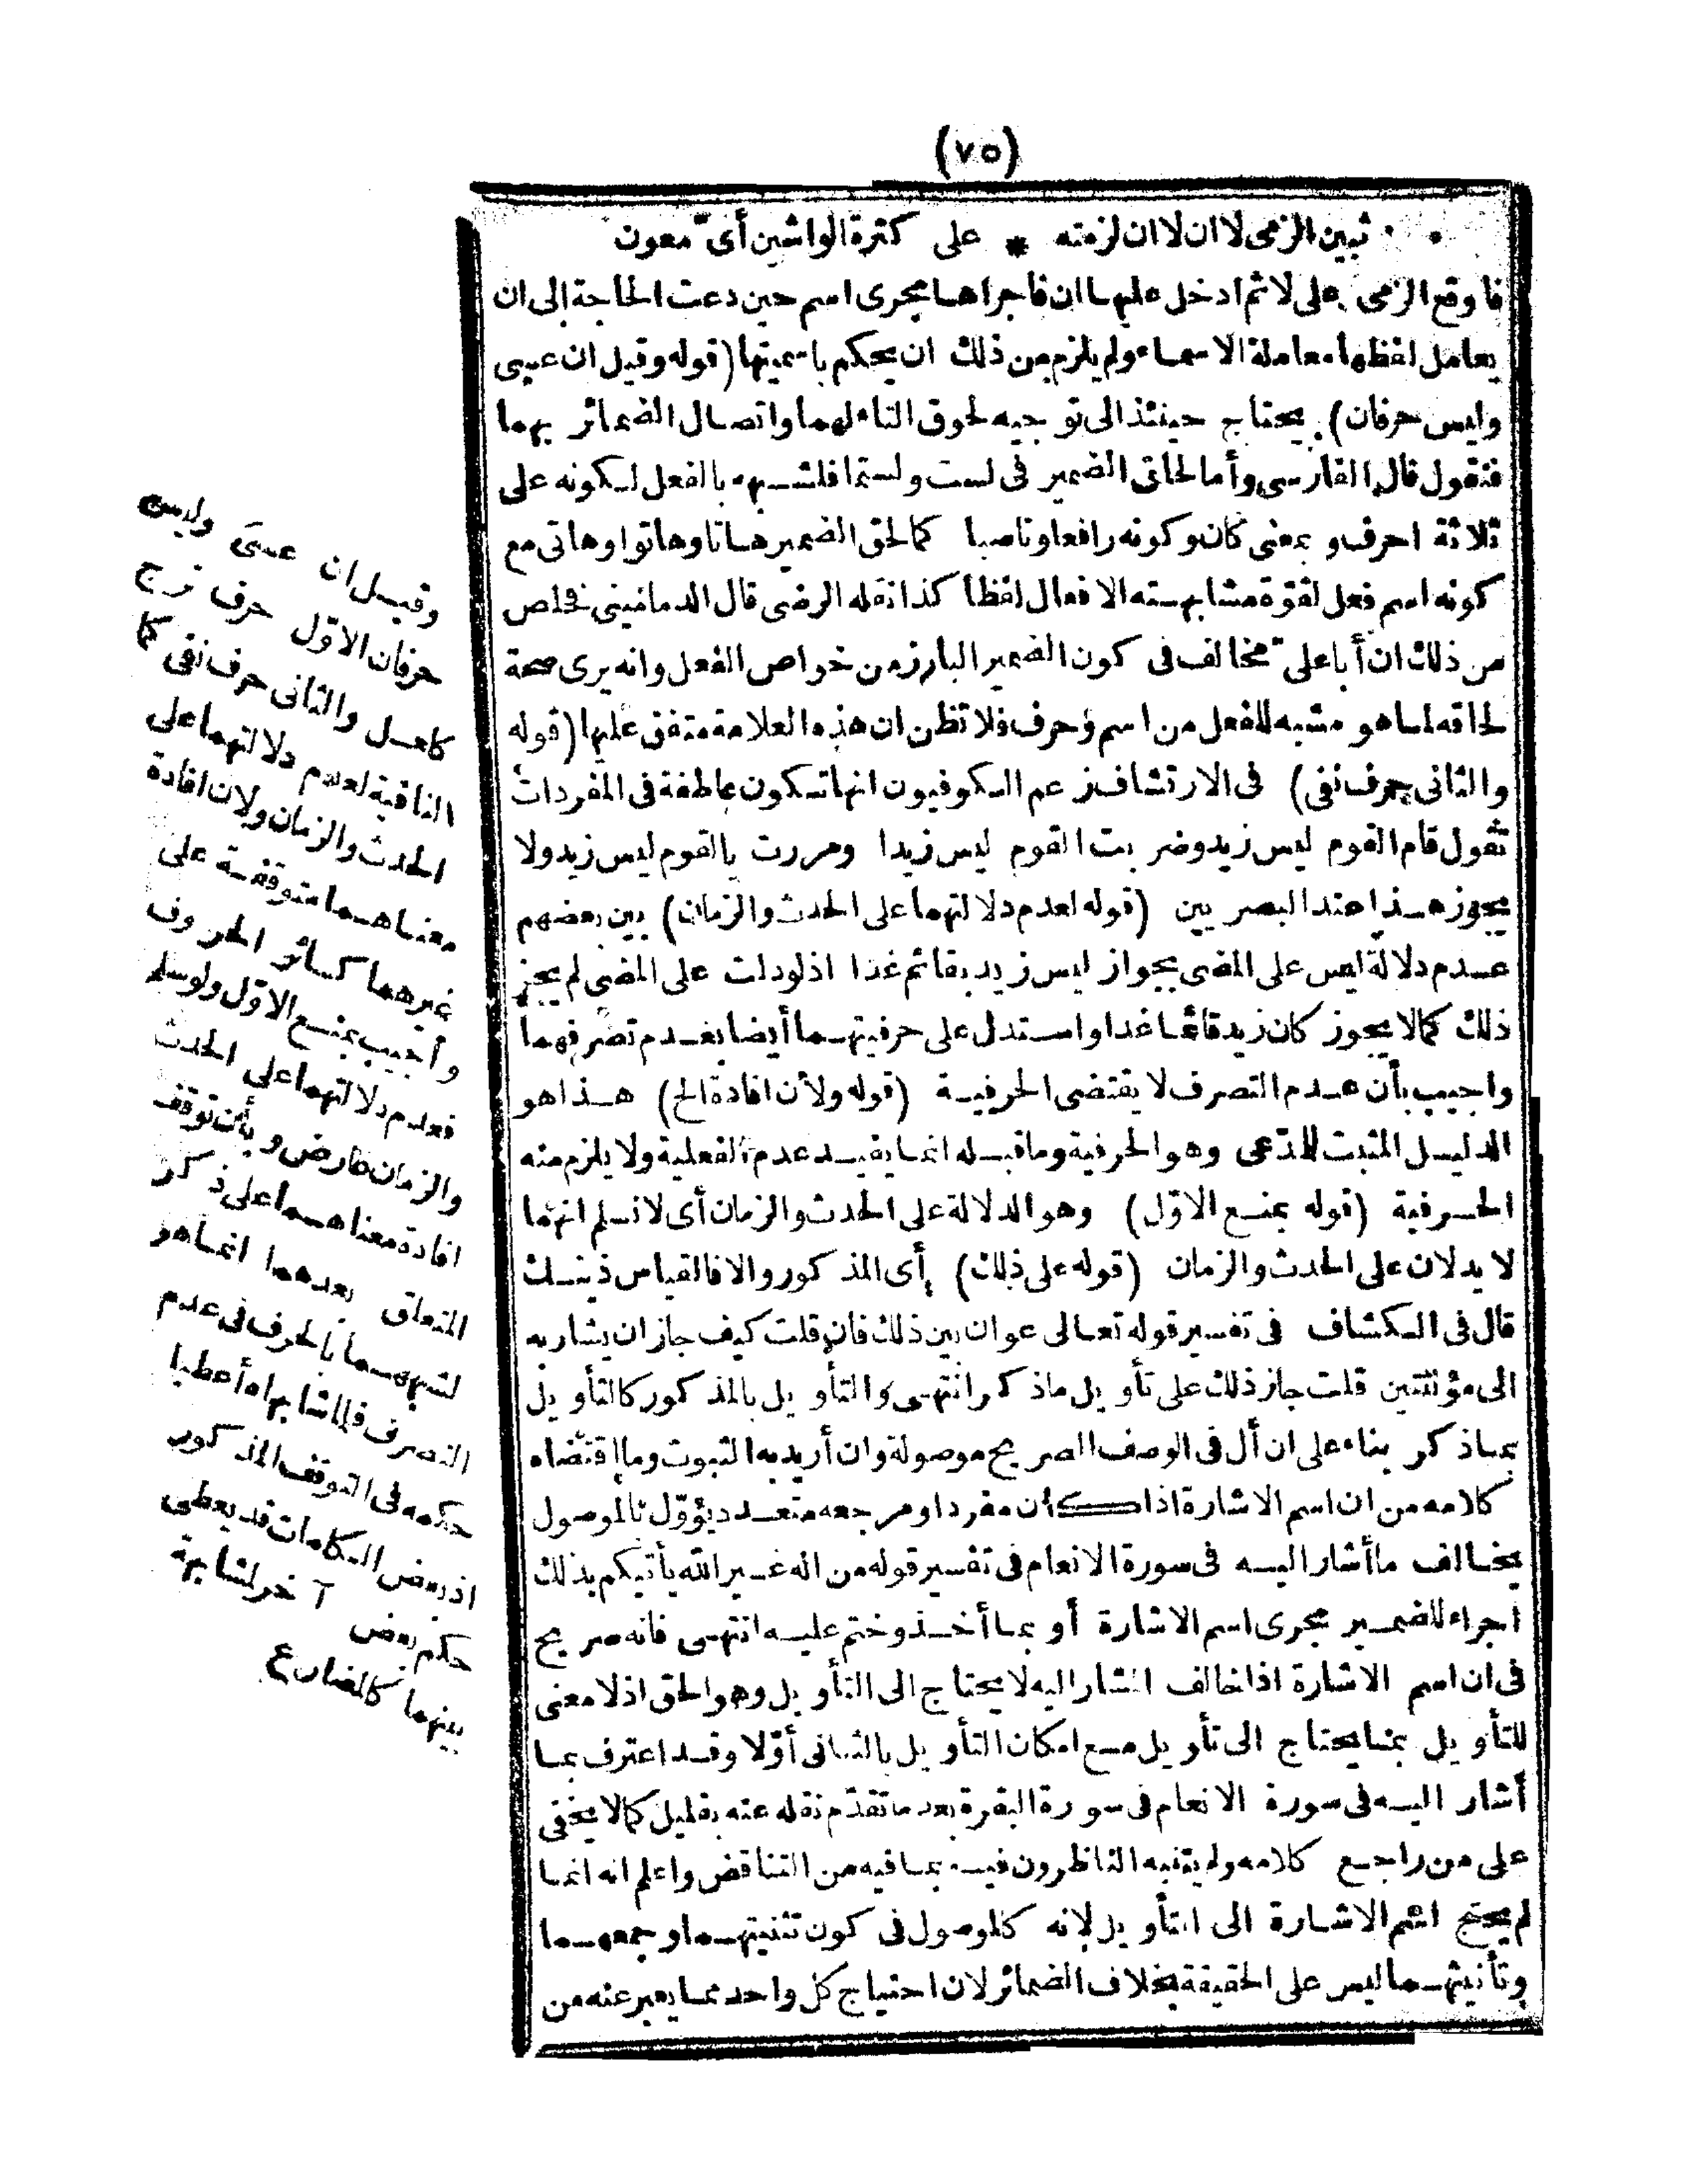 (٧٥)
ثبين الزمى لا ان لا ان لزمته * على كثرة الواشين أىّ معون
فاوقع الزمى على لا ثم ادخل عليها ان فاجراها مجرى اسم حين دعت الحاجة الى ان
يعامل لفظها معاملة الاسماء ولم يلزم من ذلك ان يحكم باسميتها (قوله وقيل ان عسى
وليس حرفان) يحتاج حينئذ الى توجيه لحوق التاء لهما واتصال الضمائر بهما
فنقول قال الفارسى وأما لحاق الضمير فى لست ولستما فلشبهه بالفعل لكونه على
ثلاثة احرف و بمعنى كان وكونه رافعا وناصبا كما لحق الضمير هاتا وهاتوا وهاتى مع
كونه اسم فعل لقوة مشابهته الافعال لفظا كذا نقله الرضى قال الدمامينى فخلص
من ذلك ان أباعلىّ مخالف فى كون الضمير البارز من خواص الفعل وانه يرى صحة
لحاقه لما هو مشبه للفعل من اسم وحرف فلا تظن ان هذه العلامة متفق عليها (قوله
والثانى حرف نفى) فى الارتشاف زعم الكوفيون انها تكون عاطفة فى المفردات
تقول قام القوم ليس زيد وضربت القوم ليس زيدا ومررت بالقوم ليس زيد ولا
يجوز هذا عند البصريين (قوله لعدم دلالتهما على الحدث والزمان) بين بعضهم
عدم دلالة ليس على المضى بجواز ليس زيد بقائم غدا اذ لو دلت على المضى لم يجز
ذلك كما لا يجوز كان زيد قائما غدا واستدل على حرفيتهما أيضا بعدم تصرفهما
واجيب بأن عدم التصرف لا يقتضى الحرفية (قوله ولأن افادة الخ) هذا هو
الدليل المثبت للمدّعى وهو الحرفية وما قبله انما يفيد عدم الفعلية ولا يلزم منه
الحرفية (قوله بمنع الاوّل) وهو الدلالة على الحدث والزمان أى لا نسلم انهما
لا يدلان على الحدث والزمان (قوله على ذلك) أى المذكور والا فالقياس ذينك
قال فى الكشاف فى تفسير قوله تعالى عوان بين ذلك فان قلت كيف جاز ان يشار به
الى مؤنثتين قلت جاز ذلك على تأويل ما ذكر انتهى والتأويل بالمذكور كالتأويل
بما ذكر بناء على ان أل فى الوصف الصريح موصولة وان أريد به الثبوت وما اقتضاه
كلامه من ان اسم الاشارة اذا كان مفردا ومرجعه متعدد يؤوّل بالموصول
يخالف ما أشار اليه فى سورة الانعام فى تفسير قوله من اله غير الله يأتيكم بذلك
اجراء للضمير مجرى اسم الاشارة أو بما أخذ وختم عليه انتهى فانه صريح
فى ان اسم الاشارة اذا خالف المشار اليه لا يحتاج الى التأويل وهو الحق اذ لا معنى
للتأويل بما يحتاج الى تأويل مع امكان التأويل بالثانى أوّلا وقد اعترف بما
أشار اليه فى سورة الانعام فى سورة البقرة بعد ما تقدّم نقله عنه بقليل كما لا يخفى
على من راجع كلامه ولم يتنبه الناظرون فيه بما فيه من التناقض واعلم انه انما
لم يحتج اسم الاشارة الى التأويل لانه كالموصول فى كون تثنيتهما وجمعهما
وتأنيثهما ليس على الحقيقة بخلاف الضمائر لان احتياج كل واحد مما يعبر عنه من
وقيل ان عسى وليس
حرفان الاوّل حرف ترج
كلعل والثانى حرف نفى كما
النافية لعدم دلالتهما على
الحدث والزمان ولان افادة
معناهما متوقفة على
غيرهما كسائر الحروف
وأجيب بمنع الاوّل ولو سلم
فعدم دلالتهما على الحدث
والزمان عارض و بأن توقف
افادة معناهما على ذكر
المتعلق بعدهما انما هو
لشبههما بالحرف فى عدم
التصرف فلما شابهاه أعطيا
حكمه فى التوقف المذكور
اذ بعض الكلمات قد يعطى
حكم بعض آخر لمشابهة
بينهما كالمضارع